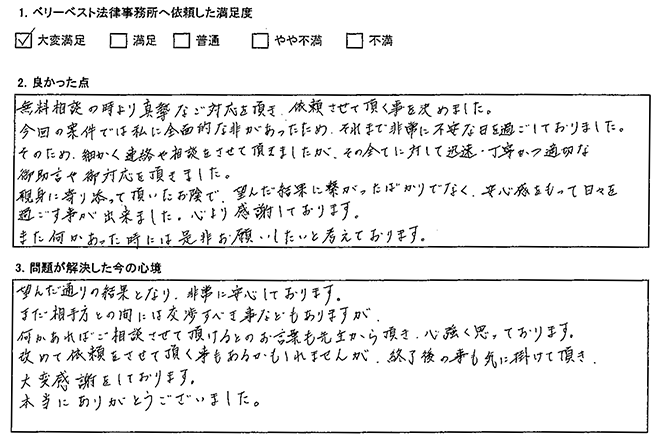 1. ベリーベスト法律事務所へ依頼した満足度
大変満足 満足 普通 やや不満 不満
2. 良かった点
無料相談の時より真摯なご対応を頂き、依頼させて頂く事を決めました。
今回の案件では私に全面的な非があったため、それまで非常に不安な日を過ごしておりました。
そのため、細かく連絡や相談をさせて頂きましたが、その全てに対して迅速・丁寧かつ適切な
御助言や御対応を頂きました。
親身に寄り添って頂いたお陰で、望んだ結果に繋がったばかりでなく、安心感をもって日々を
過ごす事が出来ました。心より感謝しております。
また何かあった時には是非お願いしたいと考えております。
3. 問題が解決した今の心境
望んだ通りの結果となり、非常に安心しております。
まだ相手方との間には交渉すべき事などもありますが、
何かあればご相談させて頂けるとのお言葉も先生から頂き、心強く思っております。
改めて依頼をさせて頂く事もあるかもしれませんが、終了後の事も気に掛けて頂き、
大変感謝をしております。
本当にありがとうございました。